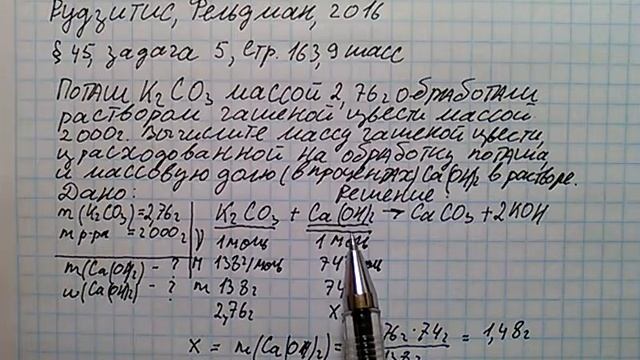 Рудзитис, Фельдман, 2016
§ 45, задача 5, стр. 163, 9 класс
Поташ K₂CO₃ массой 2,76г обработали
раствором гашеной извести массой
2000г. Вычислите массу гашеной извести,
израсходованной на обработку поташа,
и массовую долю (в процентах) Ca(OH)₂ в растворе.
Дано: Решение:
m(K₂CO₃)=2,76г K₂CO₃ + Ca(OH)₂ → CaCO₃ + 2KOH
m р-ра = 2000г ν 1моль 1моль
m(Ca(OH)₂) - ? M 138г/моль 74
w(Ca(OH)₂) - ? m 138г 74
2,76г x
x = m(Ca(OH)₂) = 76г·74г = 1,48г